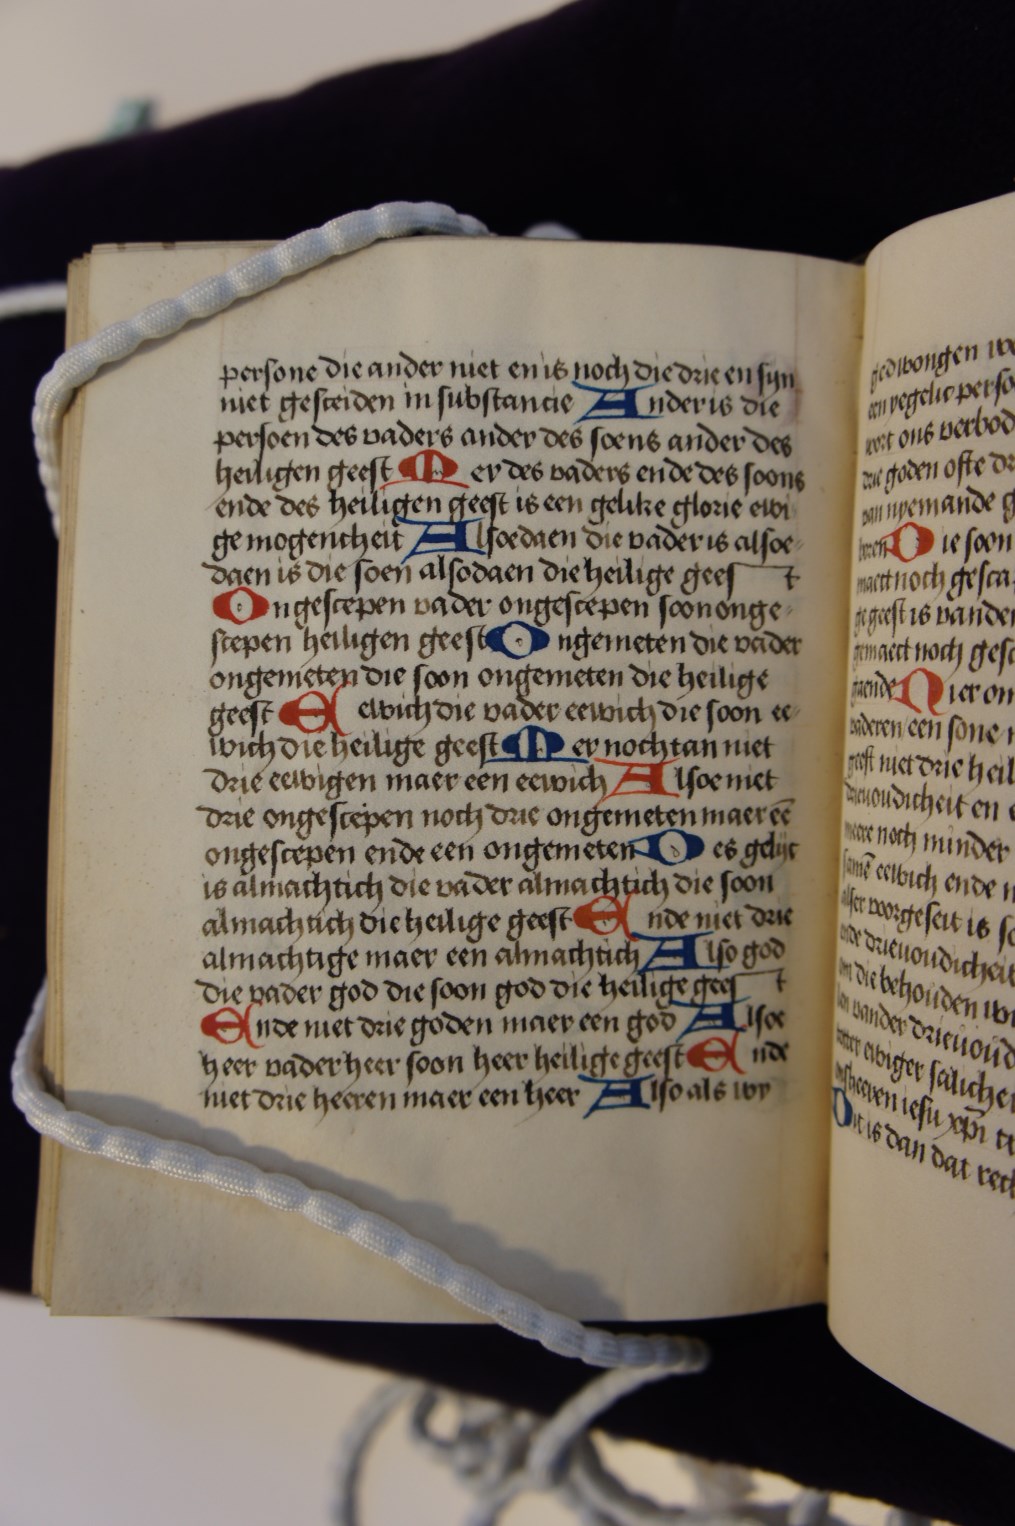 persone die ander niet en is noch die drie en sijn
niet gesceiden in substancie Ander is die
persoen des vaders ander des soens ander des
heiligen geest Mer des vaders ende des soons
ende des heiligen geest is een gelike glorie ewi
ge mogentheit Alsoedaen die vader is alsoe-
daen is die soen alsodaen die heilige geest
Ongescepen vader ongescepen soon onge-
scepen heiligen geest Ongemeten die vader
ongemeten die soon ongemeten die heilige
geest Eewich die vader eewich die soon ee-
wich die heilige geest Mer nochtan niet
drie eewigen maer een eewich Alsoe niet
drie ongescepen noch drie ongemeten maer eē
ongescepen ende een ongemeten Des gelijc
is almachtich die vader almachtich die soon
almachtich die heilige geest Ende niet drie
almachtige maer een almachtich Also god
die vader god die soon god die heilige geest
Ende niet drie goden maer een god Alsoe
heer vader heer soon heer heilige geest Ende
niet drie heeren maer een heer Also als wy
gedwongen
een yegelic
wort ons verbod
drie goden ofte
van nyemande
boren Die soon
maect noch
ge geest is vander
gemaect noch
gaende
vaderen een sone
geest niet drie
drieuoudicheit en
meere noch minder
samē eewich ende
alser voorgeseit is
ende drieuoudicheit
die behouden
vander
ewiger
iesu xp̄i
Dit is dan dat